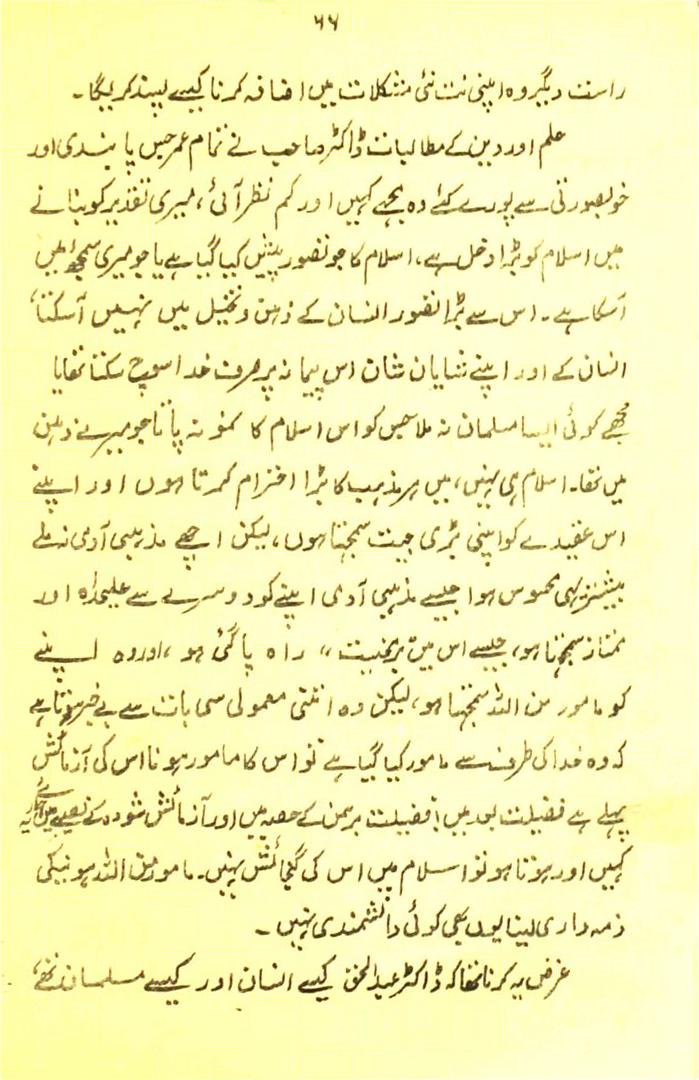 ۶۶
راست دیگر وہ اپنی نت نئی مشکلات میں اضافہ کرنا کیسے پسند کریگا۔
علم اور دین کے مطالبات ڈاکٹر صاحب نے تمام عمر جس پابندی اور
خوبصورتی سے پورے کئے وہ مجھے کہیں اور کم نظر آئی، میری تقدیر کو بنانے
میں اسلام کو بڑا دخل ہے، اسلام کا جو تصور پیش کیا گیا ہے یا جو میری سمجھ میں
آسکا ہے۔ اس سے بڑا تصور انسان کے ذہن و تخیل میں نہیں آسکتا،
انسان کے اور اپنے شایان شان اس پیمانہ پر صرف خدا سوچ سکتا تھا یا
مجھے کوئی ایسا مسلمان نہ ملا جس کو اس اسلام کا نمونہ پاتا جو میرے ذہن
میں تھا۔ اسلام ہی نہیں، میں ہر مذہب کا بڑا احترام کرتا ہوں اور اپنے
اس عقیدے کو اپنی بڑی جیت سمجھتا ہوں، لیکن اچھے مذہبی آدمی نہ ملے
بیشتر یہی محسوس ہوا جیسے مذہبی آدمی اپنے کو دوسرے سے علیحدہ اور
ممتاز سمجھتا ہو، جیسے اس میں برہمنیت،، راہ پا گئی ہو، اور وہ اپنے
کو مامور من اللہ سمجھتا ہو، لیکن وہ اتنی معمولی سی بات سے بے خبر ہوتا ہے
کہ وہ خدا کی طرف سے مامور کیا گیا ہے تو اس کا مامور ہونا اس کی آزمائش
پہلے ہے فضیلت بعد میں! فضیلت برہمن کے حصہ میں اور آزمائش شودر کے نصیب میں آئے یہ
کہیں اور ہوتا ہو تو اسلام میں اس کی گنجائش نہیں۔ مامور من اللہ ہونیکی
ذمہ داری لینا یوں بھی کوئی دانشمندی نہیں۔
عرض یہ کرنا تھا کہ ڈاکٹر عبدالحق کیسے انسان اور کیسے مسلمان تھے،